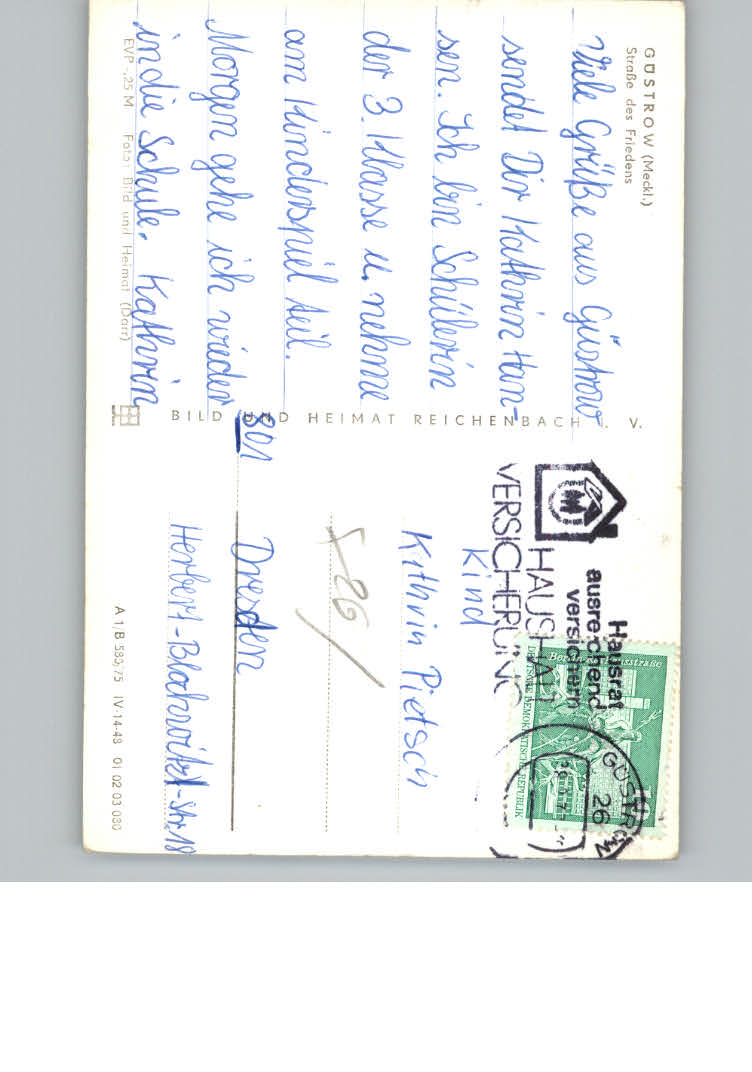 GÜSTROW (Meckl.)
Straße des Friedens
Viele Grüße aus Güstrow
sendet Dir Kathrin Han-
sen. Ich bin Schülerin
der 3. Klasse u. nehme
am Kinderspiel teil.
Morgen gehe ich wieder
in die Schule. Kathrin
EVP -,25 M Foto: Bild und Heimat (Darr)
BILD UND HEIMAT REICHENBACH I. V.
Hausrat
ausreichend
versichern
HAUSHALT
VERSICHERUNG
M
Berlin
DEUTSCHE DEMOKRATISCHE REPUBLIK
GÜSTROW
26
Kind
Kathrin Pietsch
801
Dresden
Herbert-Blochwitz-Str. 18
A 1/B 583/75 IV-14-48 01 02 03 080